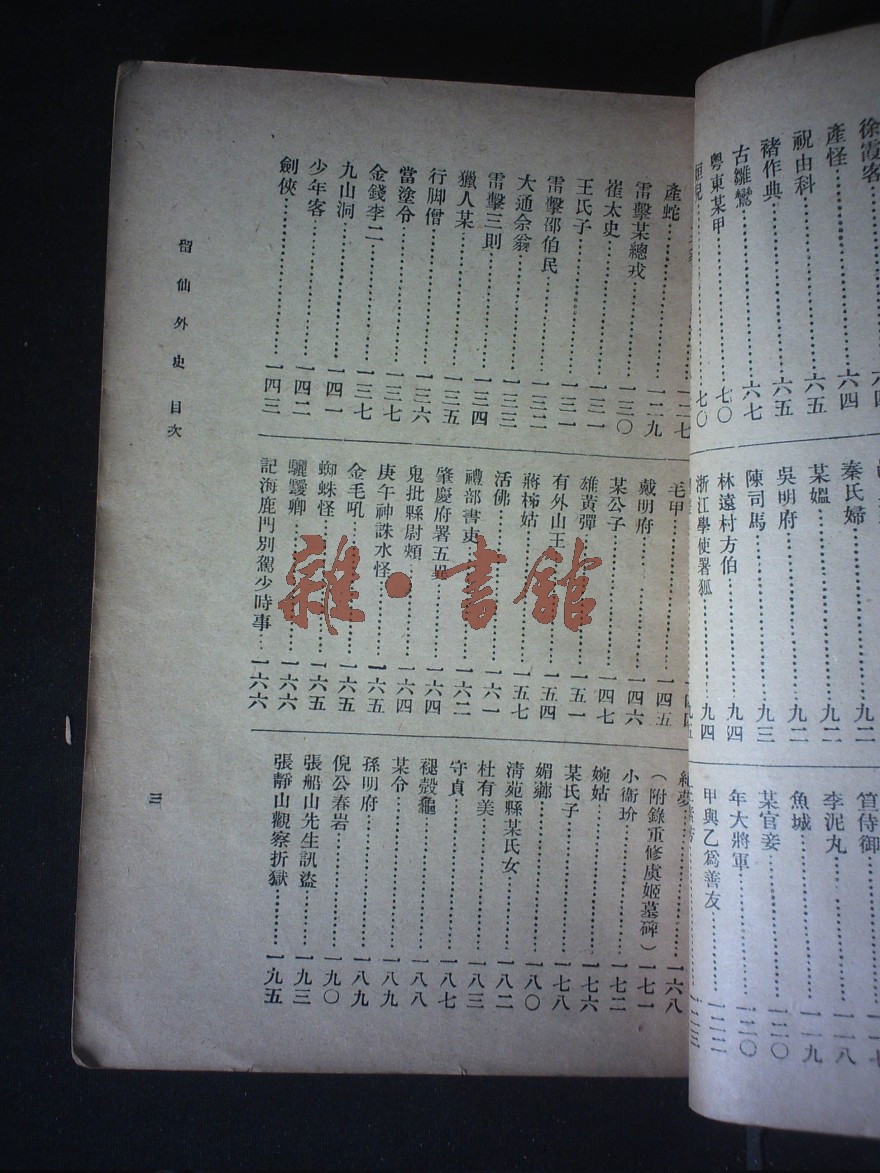 徐霞客
產怪……六四
祝由科……六五
褚作典……六五
古雛鸞……六七
粵東某甲……七〇
七〇
秦氏婦……九二
某媼……九二
吳明府……九二
陳司馬……九三
林遠村方伯……九四
浙江學使署狐……九四
笪侍御……一一七
李泥丸……一一八
魚城……一一九
某官妾……一二〇
年大將軍……一二〇
甲與乙爲善友……一二二
一二三
一二七
產蛇……一二九
雷擊某總戎……一三〇
崔太史……一三一
王氏子……一三一
雷擊邵伯民……一三二
大通佘翁……一三三
雷擊三則……一三四
獵人某……一三五
行脚僧……一三六
當塗令……一三七
金錢李二……一三七
九山洞……一四一
少年客……一四二
劍俠……一四三
毛甲……一四五
戴明府……一四六
某公子……一四七
雄黃彈……一五一
有外山王……一五四
蔣柹姑……一五七
活佛……一六一
禮部書吏……一六二
肇慶府署五異……一六四
鬼批縣尉頰……一六四
庚午神誅水怪……一六五
金毛吼……一六五
蜘蛛怪……一六五
驪靉卿……一六六
記海鹿門別駕少時事……一六六
紀夢……一六八
（附錄重修虞姬墓碑）……一七一
小衞玠……一七二
婉姑……一七六
某氏子……一七八
媚薌……一八〇
淸苑縣某氏女……一八二
杜有美……一八三
守貞……一八七
褪殼龜……一八八
某令……一八九
孫明府……一八九
倪公春岩……一九〇
張船山先生訊盜……一九三
張靜山觀察折獄……一九五
留仙外史 目次
三
雜·書館